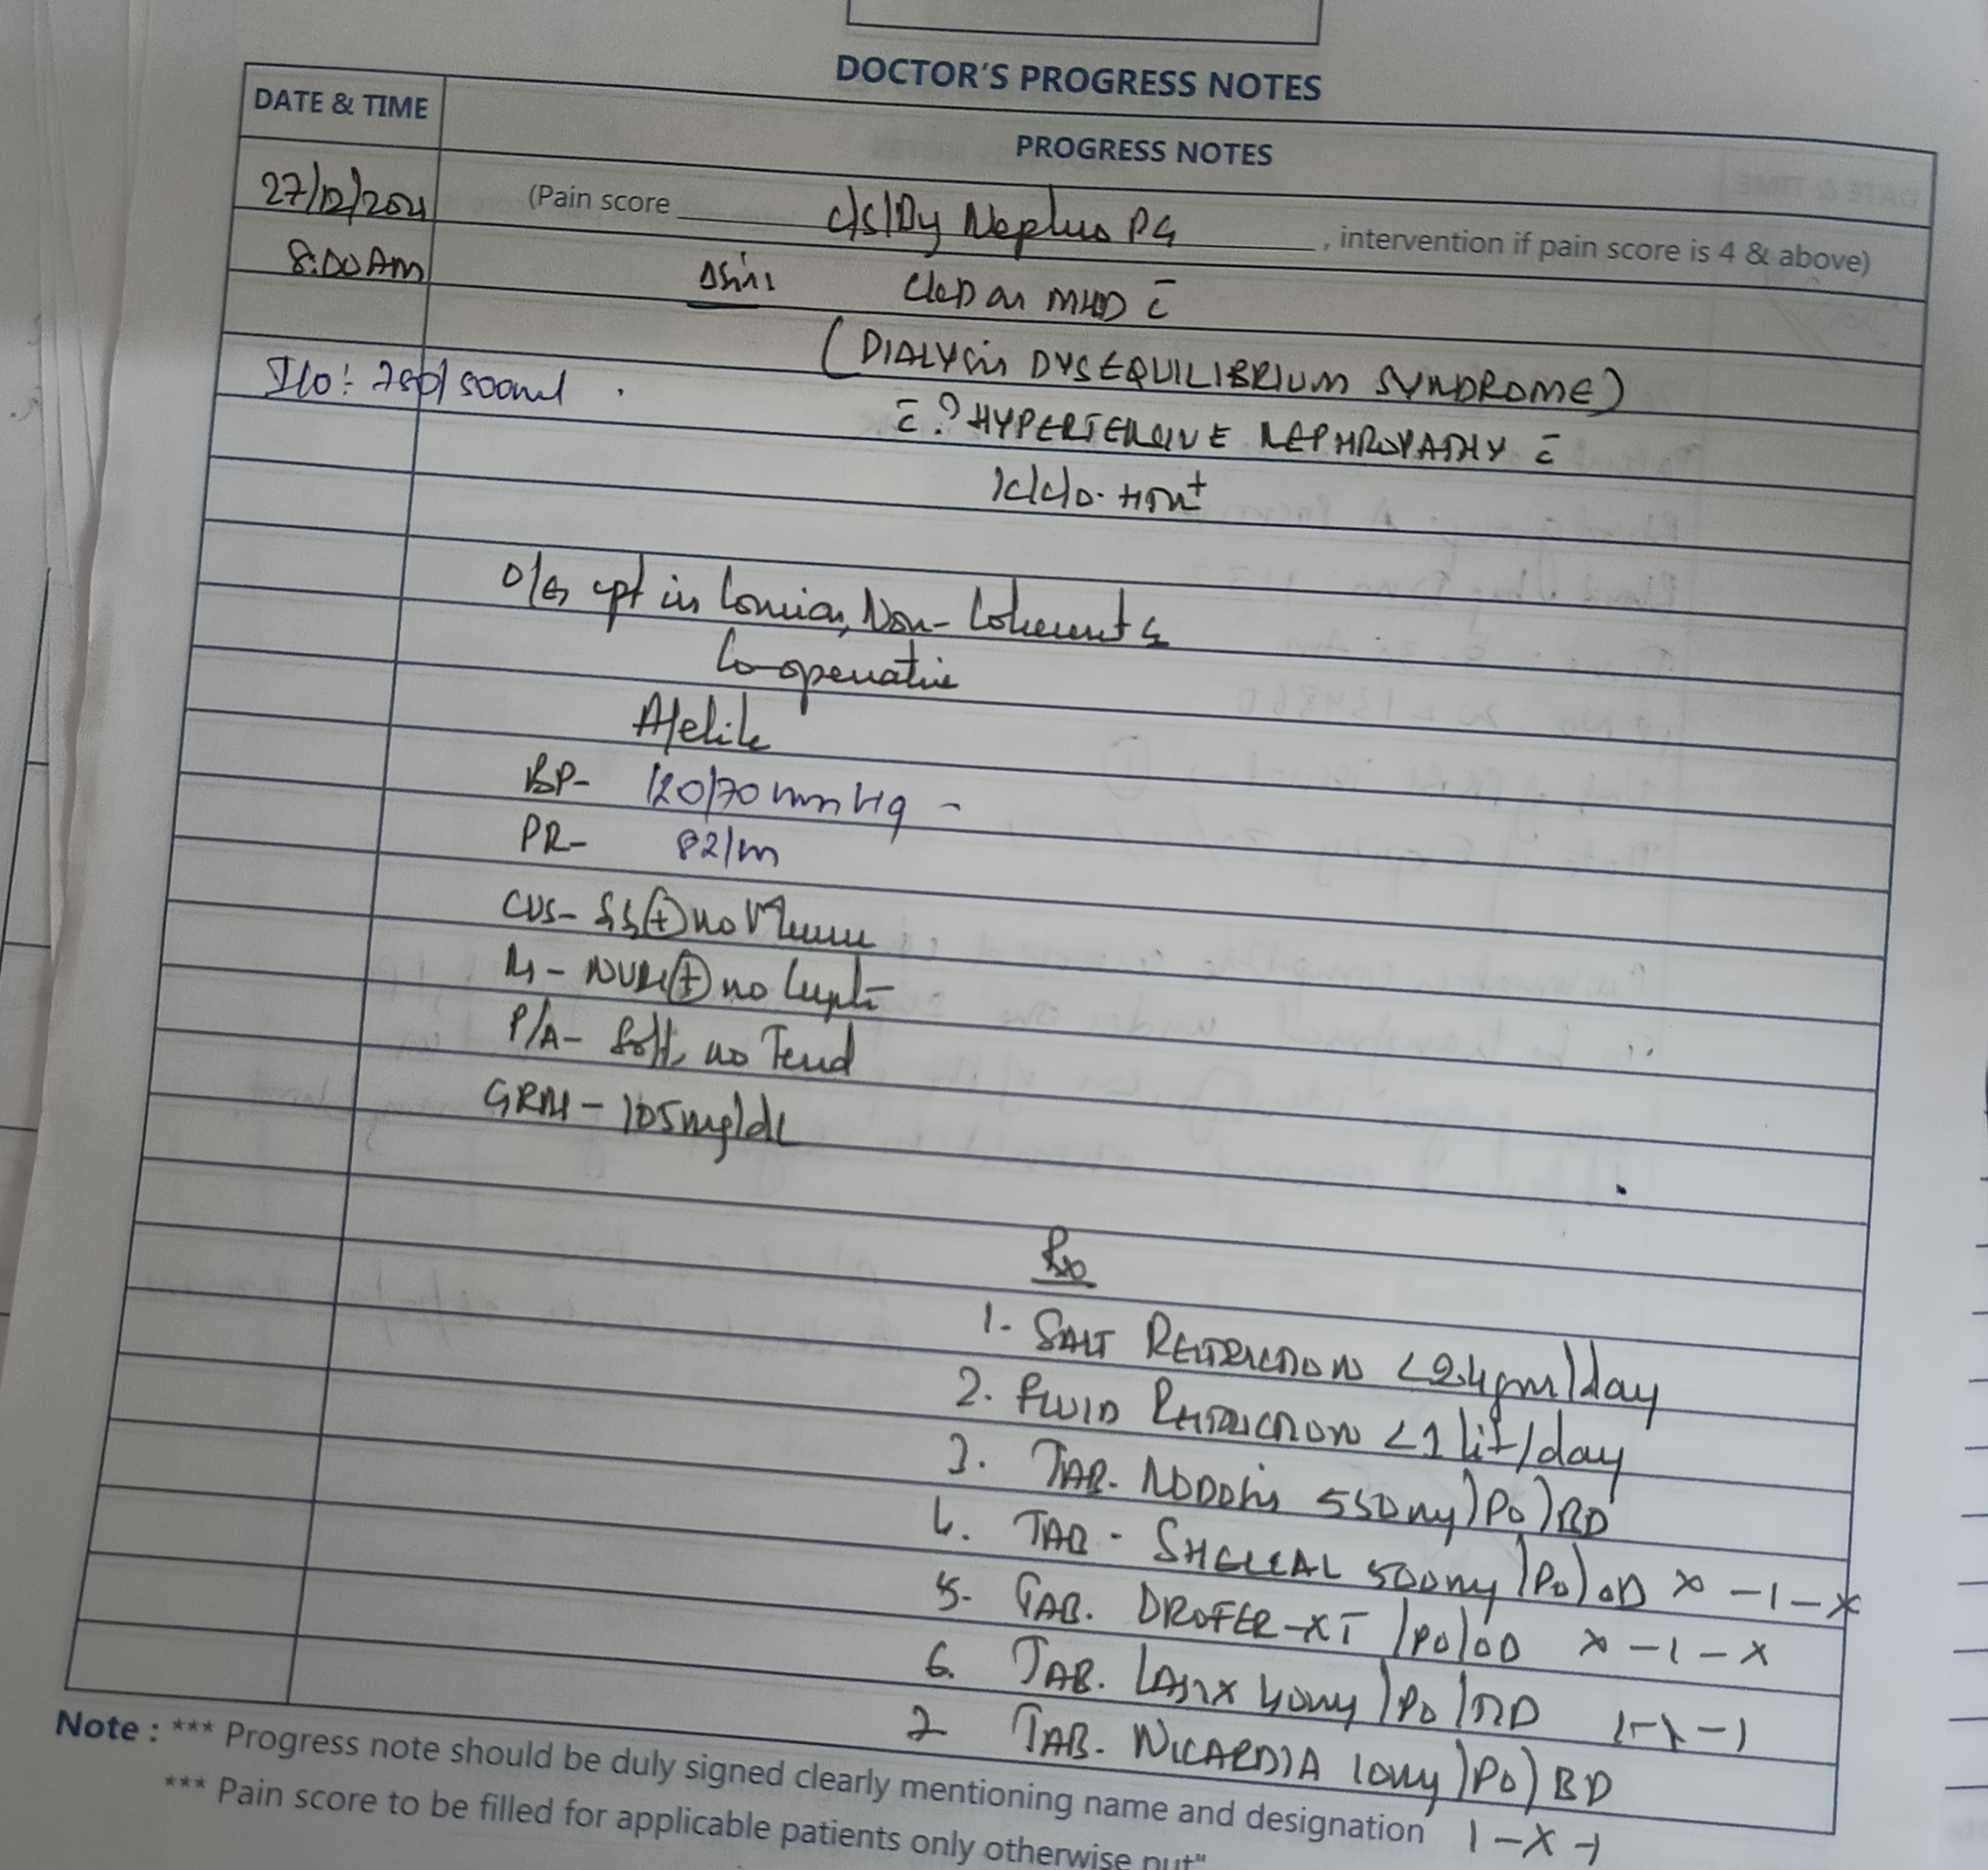 DOCTOR'S PROGRESS NOTES
DATE & TIME
PROGRESS NOTES
27/12/2021 (Pain score c/s/by Nephro PG , intervention if pain score is 4 & above)
8:00 AM CKD on MHD c̄
(DIALYSIS DYSEQUILIBRIUM SYNDROME)
I/O: 750/500ml
c̄ ? HYPERTENSIVE NEPHROPATHY c̄
K/C/O. HTN+
O/E, pt is Conscious, Non-Coherent &
Co-operative
Afebrile
BP- 120/70 mm Hg -
PR- 82/m
CVS- S1S2(+) no Murmur
RS- NVBS(+) no
P/A- Soft, no Tend
GRBS- 105mg/dL
Rx
1. SALT RESTRICTION <2.4gm/day
2. FLUID RESTRICTION <1 lit/day
3. TAB. NODOSIS 550mg/PO/BD
4. TAB. SHELCAL 500mg/PO/OD x-1-x
5. TAB. OROFER-XT /PO/OD x-1-x
6. TAB. LASIX 40mg/PO/BD 1-x-1
7 TAB. NICARDIA 10mg/PO/BD
1-x-1
Note : *** Progress note should be duly signed clearly mentioning name and designation
*** Pain score to be filled for applicable patients only otherwise put"